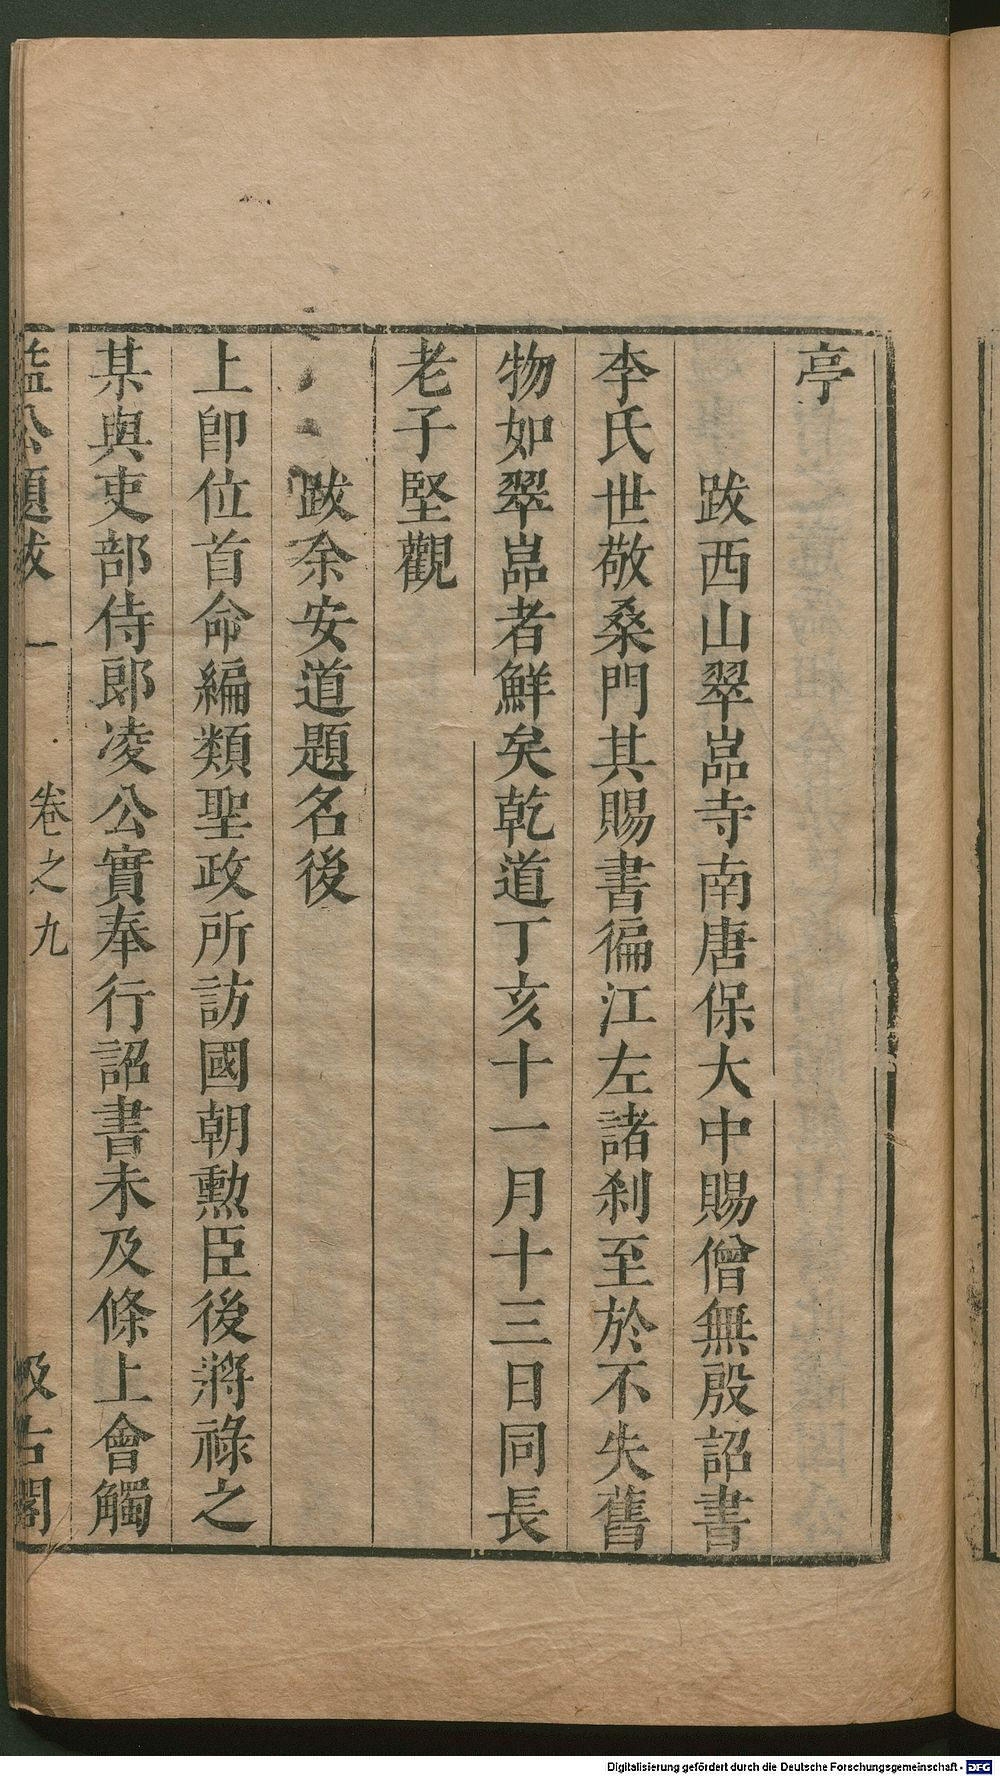 亭
跋西山翠嵓寺南唐保大中賜僧無殷詔書
李氏世敬桑門其賜書徧江左諸刹至於不失舊
物如翠嵓者鮮矣乾道丁亥十一月十三日同長
老子堅觀
跋余安道題名後
上卽位首命編類聖政所訪國朝勲臣後將祿之
某與吏部侍郞凌公實奉行詔書未及條上會觸
益公題跋 一 卷之九 汲古閣
Digitalisierung gefördert durch die Deutsche Forschungsgemeinschaft - DFG